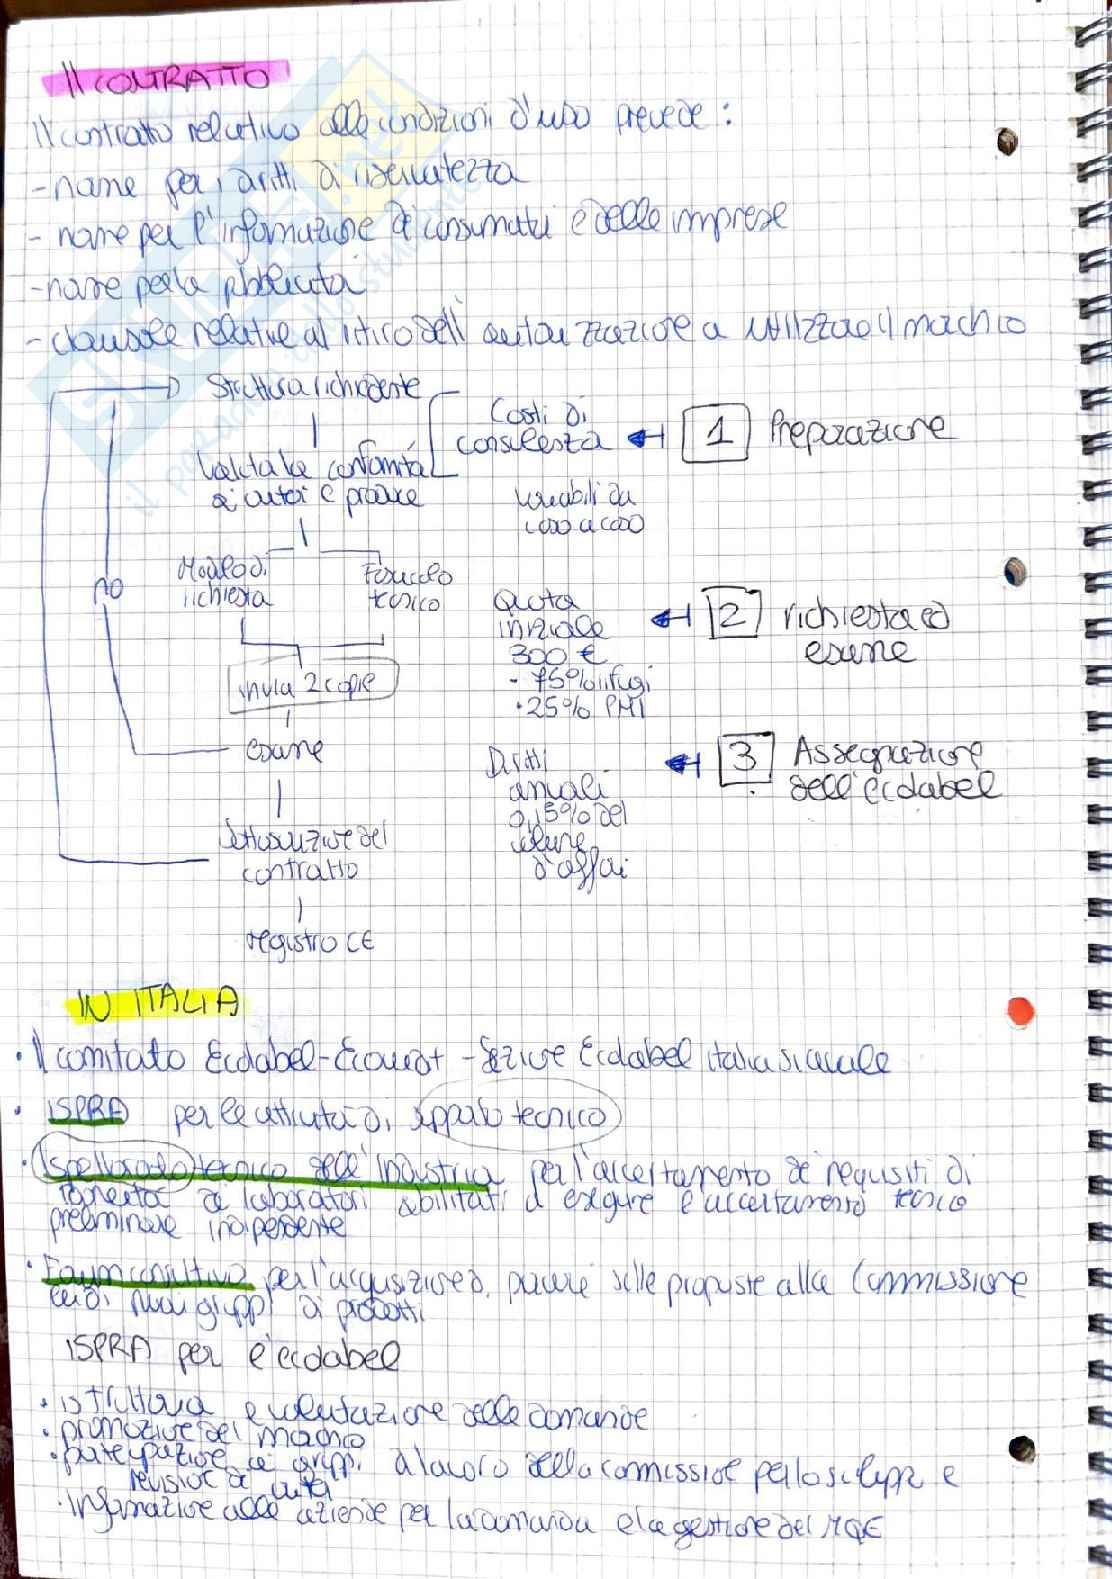 Il CONTRATTO
Il contratto relativo alle condizioni d'uso prevede:
- norme per i diritti di riservatezza
- norme per l'informazione dei consumatori e delle imprese
- norme per la pubblicità
- clausole relative al ritiro dell'autorizzazione a utilizzare il marchio
Struttura richiedente
Costi di
consulenza
1 Preparazione
Valuta la conformità
ai criteri e produce
variabili da
caso a caso
no
Modulo di
richiesta
Fascicolo
tecnico
Quota
iniziale
300 €
- 75% rifugi
• 25% PMI
2 richiesta ed
esame
invia 2 copie
esame
Diritti
annuali
0,15% del
volume
d'affari
3 Assegnazione
dell'ecolabel
Sottoscrizione del
contratto
registro CE
IN ITALIA
• Il comitato Ecolabel-Ecoaudit - Sezione Ecolabel Italia si avvale
• ISPRA per le attività di supporto tecnico
• Ispettorato tecnico dell'industria per l'accertamento dei requisiti di
dei laboratori abilitati a eseguire l'accertamento tecnico
preliminare indipendente
• Forum consultivo per l'acquisizione di pareri sulle proposte alla Commissione
di nuovi gruppi di prodotti
ISPRA per l'ecolabel
• istruttoria e valutazione delle domande
• promozione del marchio
• partecipazione ai gruppi di lavoro della commissione per lo sviluppo e
revisione dei criteri
• informazione alle aziende per la domanda e la gestione del MQE